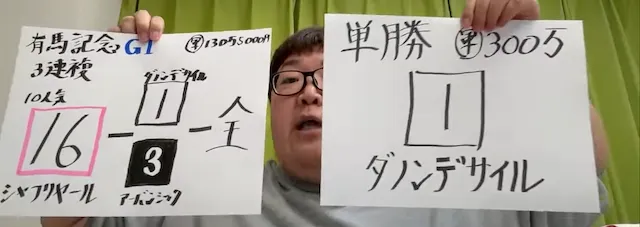 有馬記念 G1 ㊐130万5000円
3連複
10人気
16
シャフリヤール
ダノンデサイル
1
3
アーバンシック
全
単勝 ㊐300万
1
ダノンデサイル